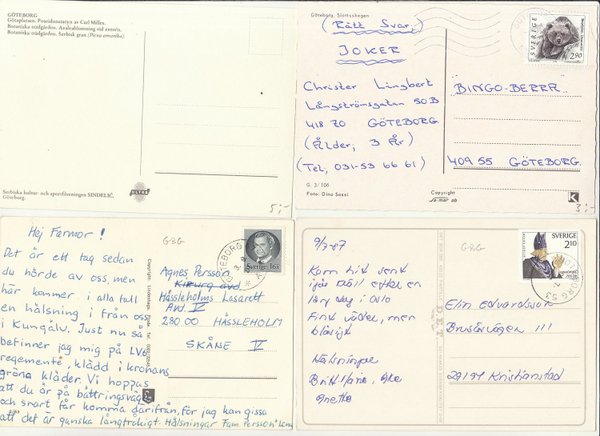 GÖTEBORG
Götaplatsen. Poseidonstatyn av Carl Milles.
Botaniska trädgården. Azaleablomning vid entrén.
Botaniska trädgården. Serbisk gran (Picea omorika)
Serbiska kultur- och sportföreningen SINDELIĆ,
Göteborg.
ULTRA
5:-
Göteborg. Slottsskogen
(Rätt Svar)
JOKER
Christer Lingbert
Långströmsgatan 50B
418 70 GÖTEBORG
(Ålder, 3 År)
(Tel, 031-53 66 61)
G. 3/106
Foto: Dino Sassi
Copyright
SVERIGE
2.90
BINGO-BERRA
409 55 GÖTEBORG
K
3:-
Hej Farmor!
Det är ett tag sedan
du hörde av oss, men
här kommer i alla fall
en hälsning i från oss
i Kungälv. Just nu så
befinner jag mig på LV6
regemente, klädd i kronans
gröna kläder. Vi hoppas
att du är på bättringsväg
och snart får komma därifrån, för jag kan gissa
att det är ganska långtråkigt. Hälsningar Fam. Persson
GBG
GÖTEBORG
Sverige 165
Agnes Persson
Kirurg avd
Hässleholms Lasarett
Avd. V
280 00 HÄSSLEHOLM
SKÅNE V
Copyright
9/7-87
Kom hit sent
igår kväll efter en
lång dag i Oslo
Fint väder, men
blåsigt
Hälsningar
Britt Marie, Åke
Anette
GBG
SVERIGE
2.10
BORG 53
Elin Edvardsson
Brusåsvägen 111
29194 Kristianstad